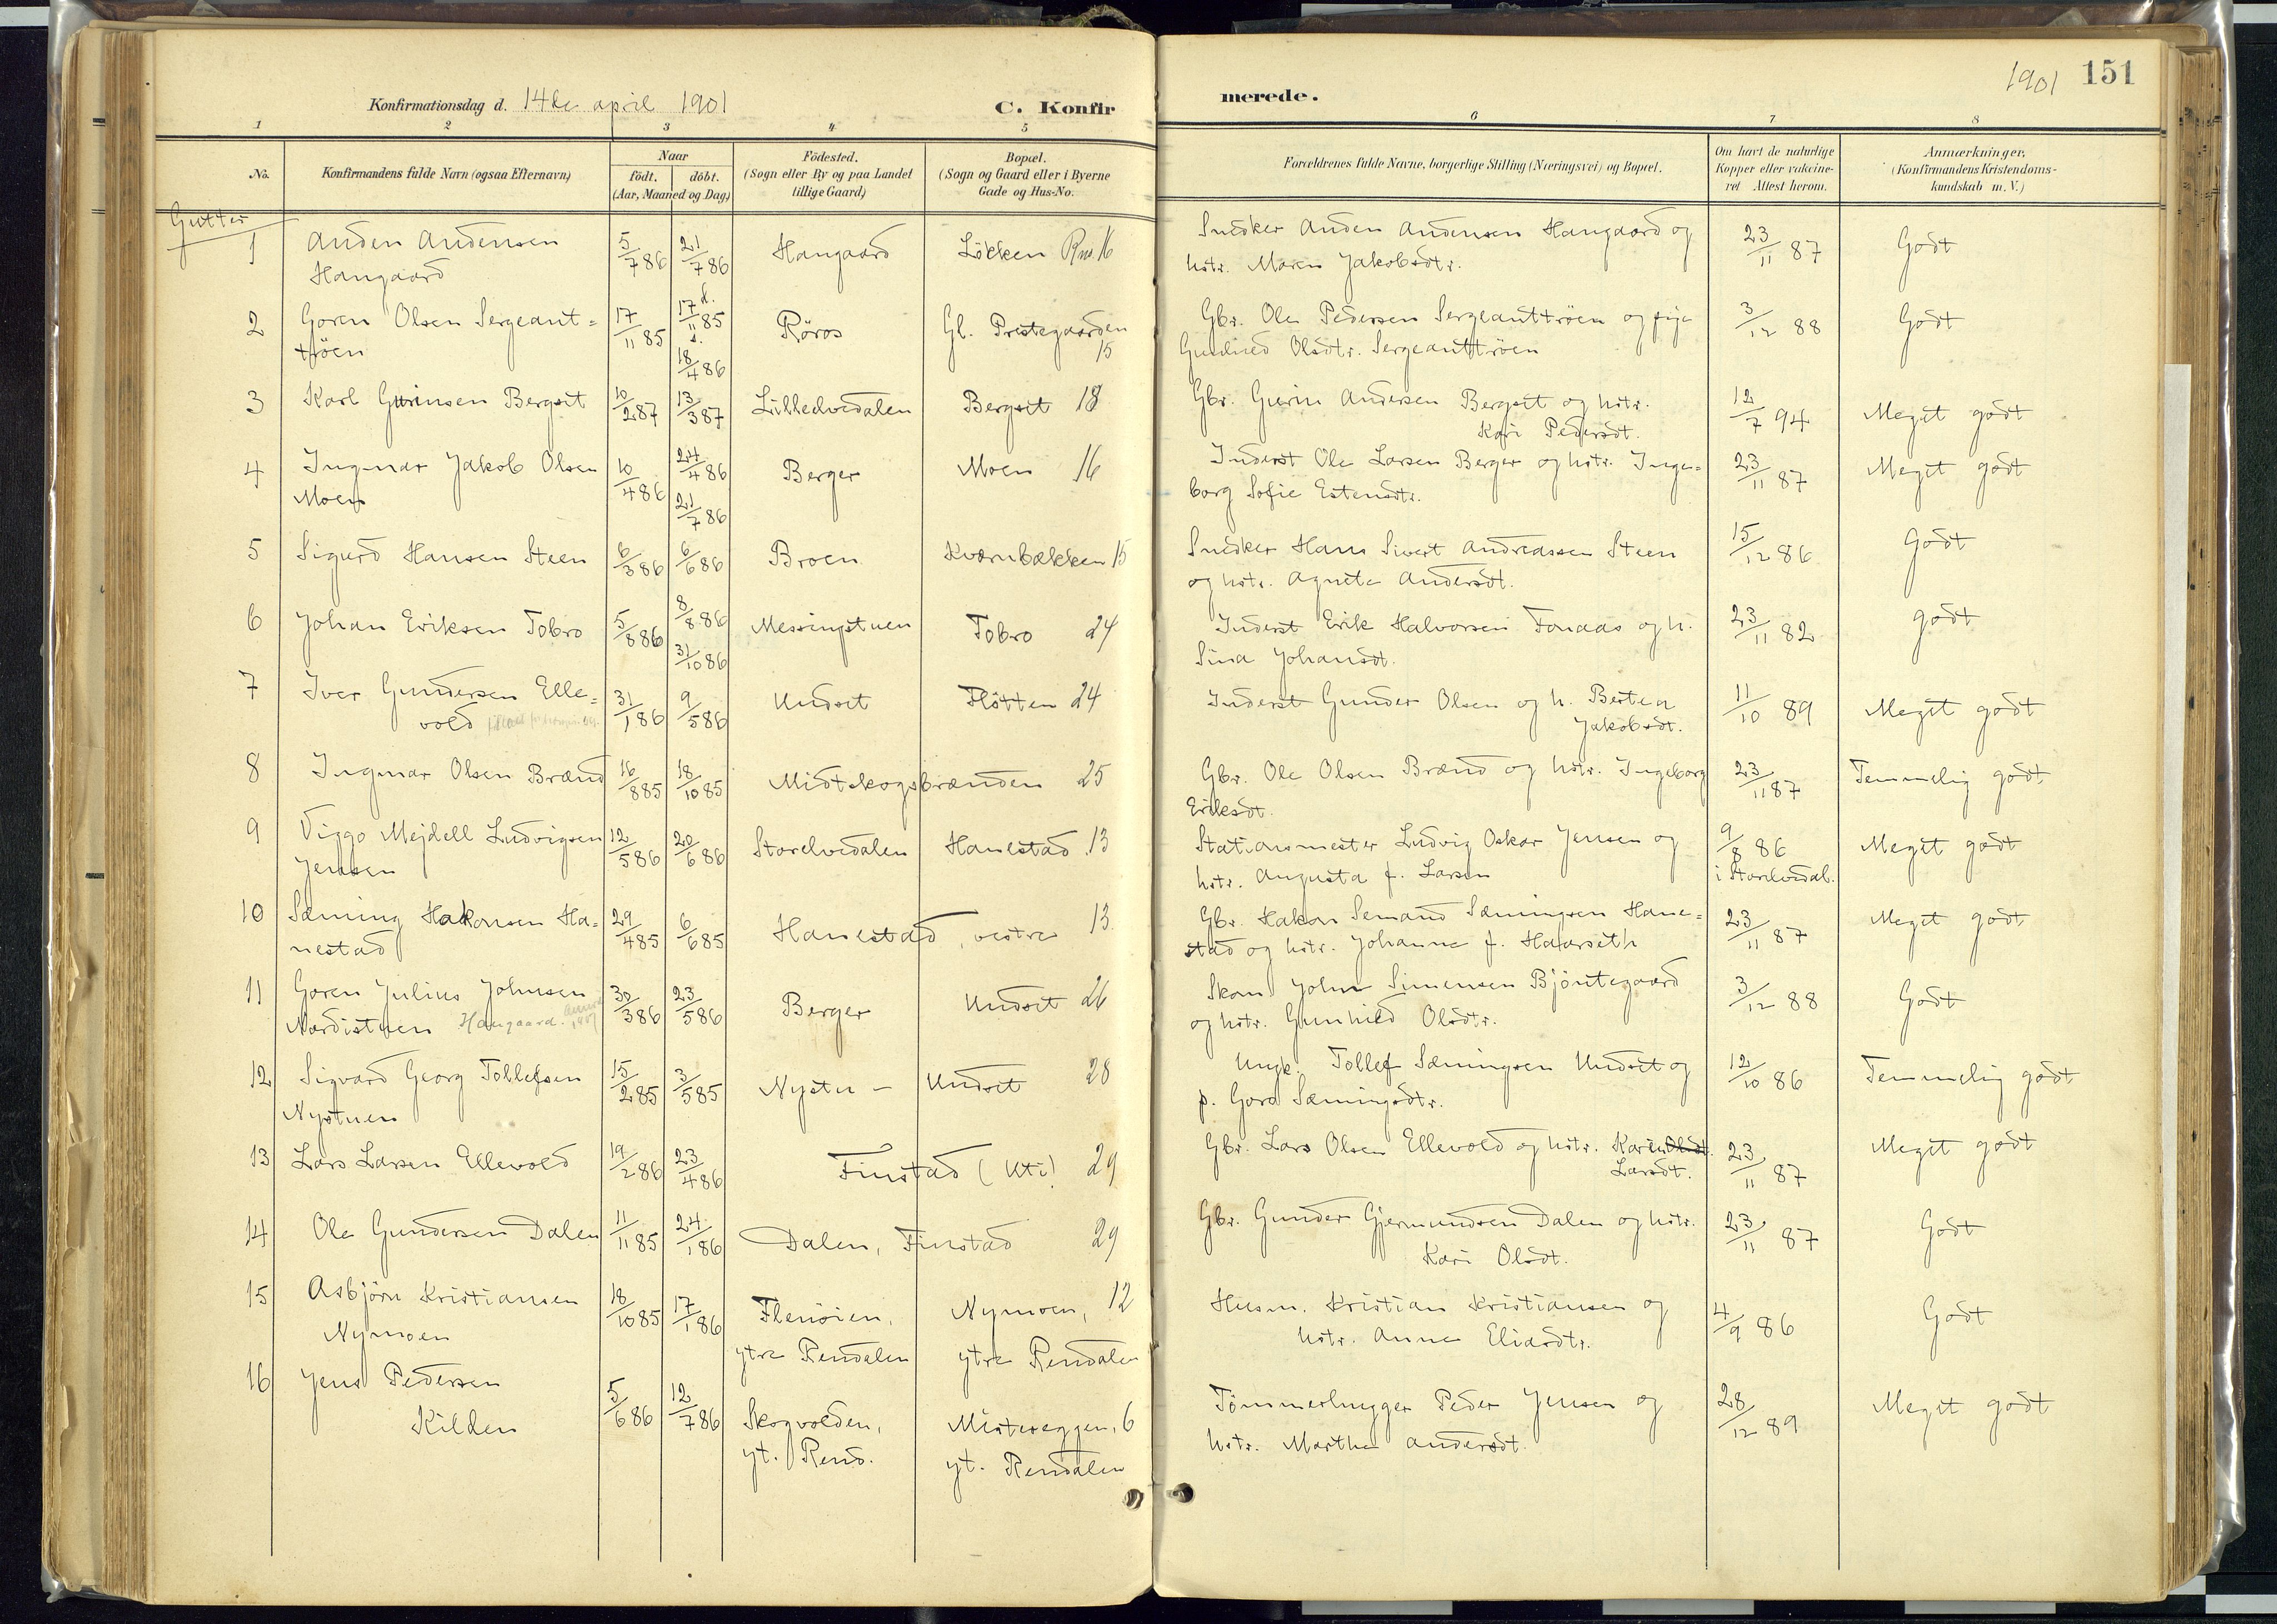 Konfirmationsdag d. 14de april 1901
C. Konfirmerede.
1901 151
1 2 3 4 5 6 7 8
No.
Konfirmandens fulde Navn (ogsaa Efternavn)
Naar
født. döbt.
(Aar, Maaned og Dag)
Födested.
(Sogn eller By og paa Landet
tillige Gaard)
Bopæl.
(Sogn og Gaard eller i Byerne
Gade og Hus-No.
Forældrenes fulde Navne, borgerlige Stilling (Næringsvei) og Bopæl.
Om havt de naturlige
Kopper eller vakcine-
ret Attest herom.
Anmærkninger,
(Konfirmandens Kristendoms-
kundskab m. V.)
Gutter
1 Anden Andensen Hangaard 5/7 86 21/7 86 Hangaard Løkken 16 Snedker Anden Andensen Hangaard og
hstr. Maren Jakobsdtr. 23/11 87 Godt
2 Goren Olsen Sergeant=
trøen 17/11 85 d. 17/11 85 s. 18/4 86 Røros Gl. Prestegaarden 15 Gbr. Ole Pedersen Sergeanttrøen og pige
Gunhild Olsdtr. Sergeanttrøen 3/12 88 Godt
3 Karl Gurinsen Bergset 10/2 87 13/3 87 Lilleelvedalen Bergset 18 Gbr. Gurin Andersen Bergset og hstr.
Kari Pedersdt. 12/7 94 Meget godt
4 Ingmar Jakob Olsen
Moen 10/4 86 24/4 86 21/7 86 Berger Moen 16 Inderst Ole Larsen Berger og hstr. Inge=
borg Sofie Estensdtr. 23/11 87 Meget godt
5 Sigurd Hansen Steen 6/3 86 6/6 86 Broen Kværnbækken 15 Snedker Hans Sivert Andreassen Steen
og hstr. Agnete Andersdt. 15/12 86 Godt
6 Johan Eriksen Tobro 5/8 86 8/8 86 31/10 86 Messingstuen Tobro 24 Inderst Erik Halvorsen Fonaas og h.
Sina Johansdt. 23/11 82 godt
7 Iver Gundersen Elle=
vold 31/1 86 9/5 86 Undset Fløtten 24 Inderst Gunder Olsen og h. Bertea
Jakobsdt. 11/10 89 Meget godt
8 Ingmar Olsen Brænd 16/8 85 18/10 85 Midtskogsbrænden 25 Gbr. Ole Olsen Brænd og hstr. Ingeborg
Eriksdt. 23/11 87 Temmelig godt
9 Viggo Mejdell Ludvigsen
Jensen 12/5 86 20/6 86 Storelvedalen Hanestad 13 Stationsmester Ludvig Oskar Jensen og
hstr. Augusta f. Larsen 9/8 86
i Storelvedal. Meget godt
10 Sæming Hakonsen Ha=
nestad 29/4 85 6/6 85 Hanestad, vestre 13 Gbr. Hakon Semand Sæmingsen Hane=
stad og hstr. Johanne f. Haarseth 23/11 87 Meget godt
11 Goren Julius Johnsen
Nordistuen Hangaard 30/3 86 23/5 86 Berger Undset 26 Skom John Simensen Bjöntegaard
og hstr. Gunhild Olsdtr. 3/12 88 Godt
12 Sigvard Georg Tollefsen
Nystuen 15/2 85 3/5 85 Nystu - Undset 28 Ungk. Tollef Sæmingsen Undset og
p. Goro Sæmingsdtr. 12/10 86 Temmelig godt
13 Lars Larsen Ellevold 19/2 86 23/4 86 Finstad (Uti) 29 Gbr. Lars Olsen Ellevold og hstr. Karen Olsdt.
Larsdt. 23/11 87 Meget godt
14 Ole Gundersen Dalen 11/11 85 24/1 86 Dalen, Finstad 29 Gbr. Gunder Gjermundsen Dalen og hstr.
Kari Olsdt. 23/11 87 Godt
15 Asbjörn Kristiansen
Nymoen 18/10 85 17/1 86 Flenöien,
ytre Rendalen Nymoen, 12
ytre Rendalen Husm. Kristian Kristiansen og
hstr. Anne Eliasdtr. 4/9 86 Godt
16 Jens Pedersen
Kilden 5/6 86 12/7 86 Skogvolden,
yt. Rend. Mistereggen, 6
yt. Rendalen Tömmerhugger Peder Jensen og
hstr. Marthe Andersdt. 28/12 89 Meget godt